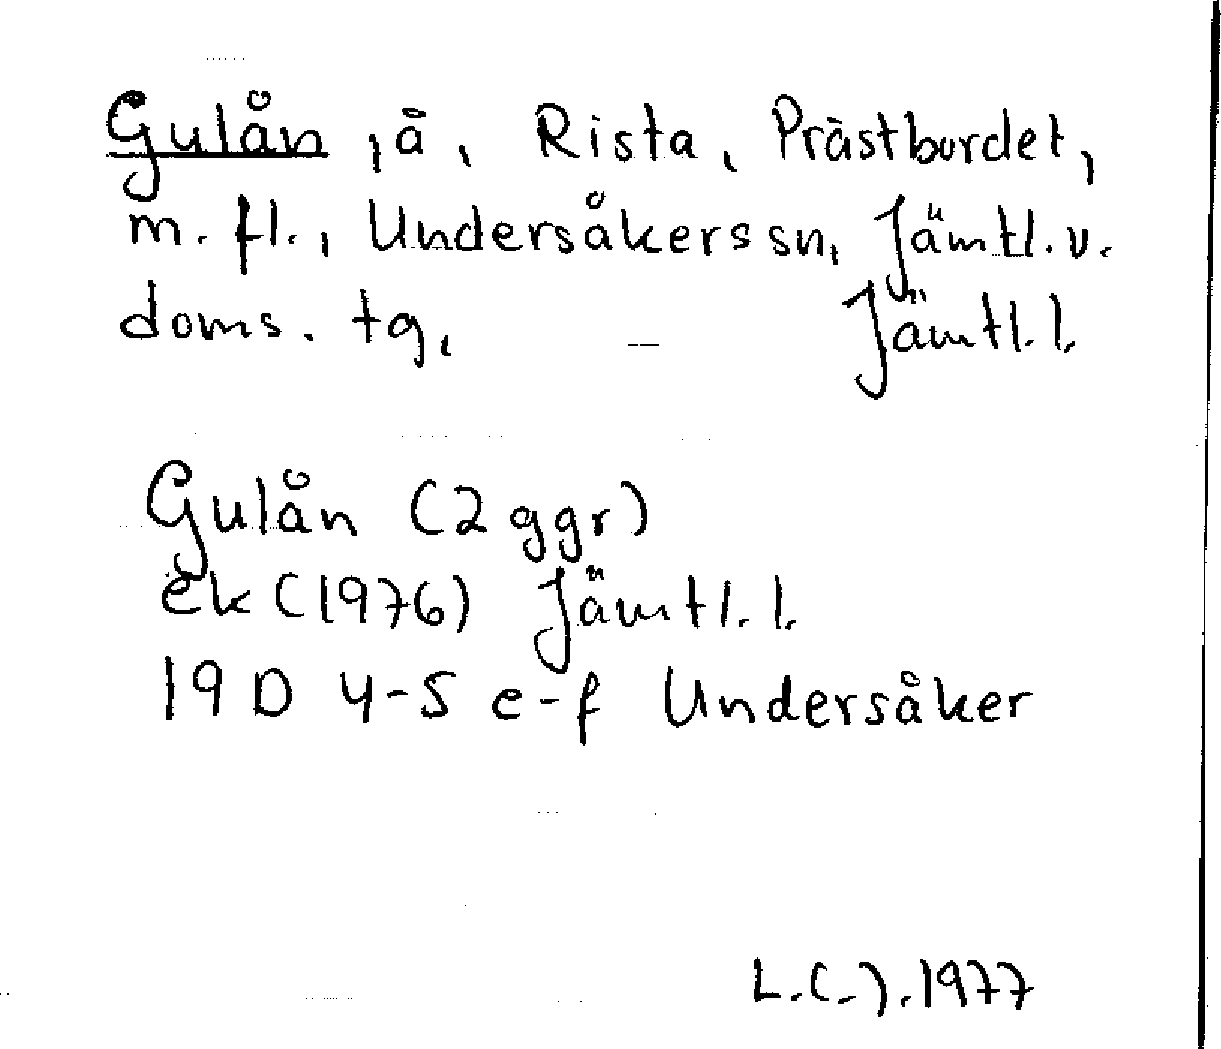 Gulån, å, Rista, Prästbordet,
m. fl., Undersåkers sn, Jämtl. v.
doms. tg, Jämtl. l.
Gulån (2 ggr)
ek (1976) Jämtl. l.
19 D 4-5 e-f Undersåker
L.C-J. 1977